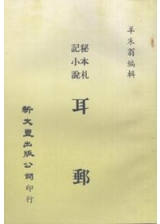 羊朱翁編輯
秘本札
記小說
耳郵
新文豐出版公司印行